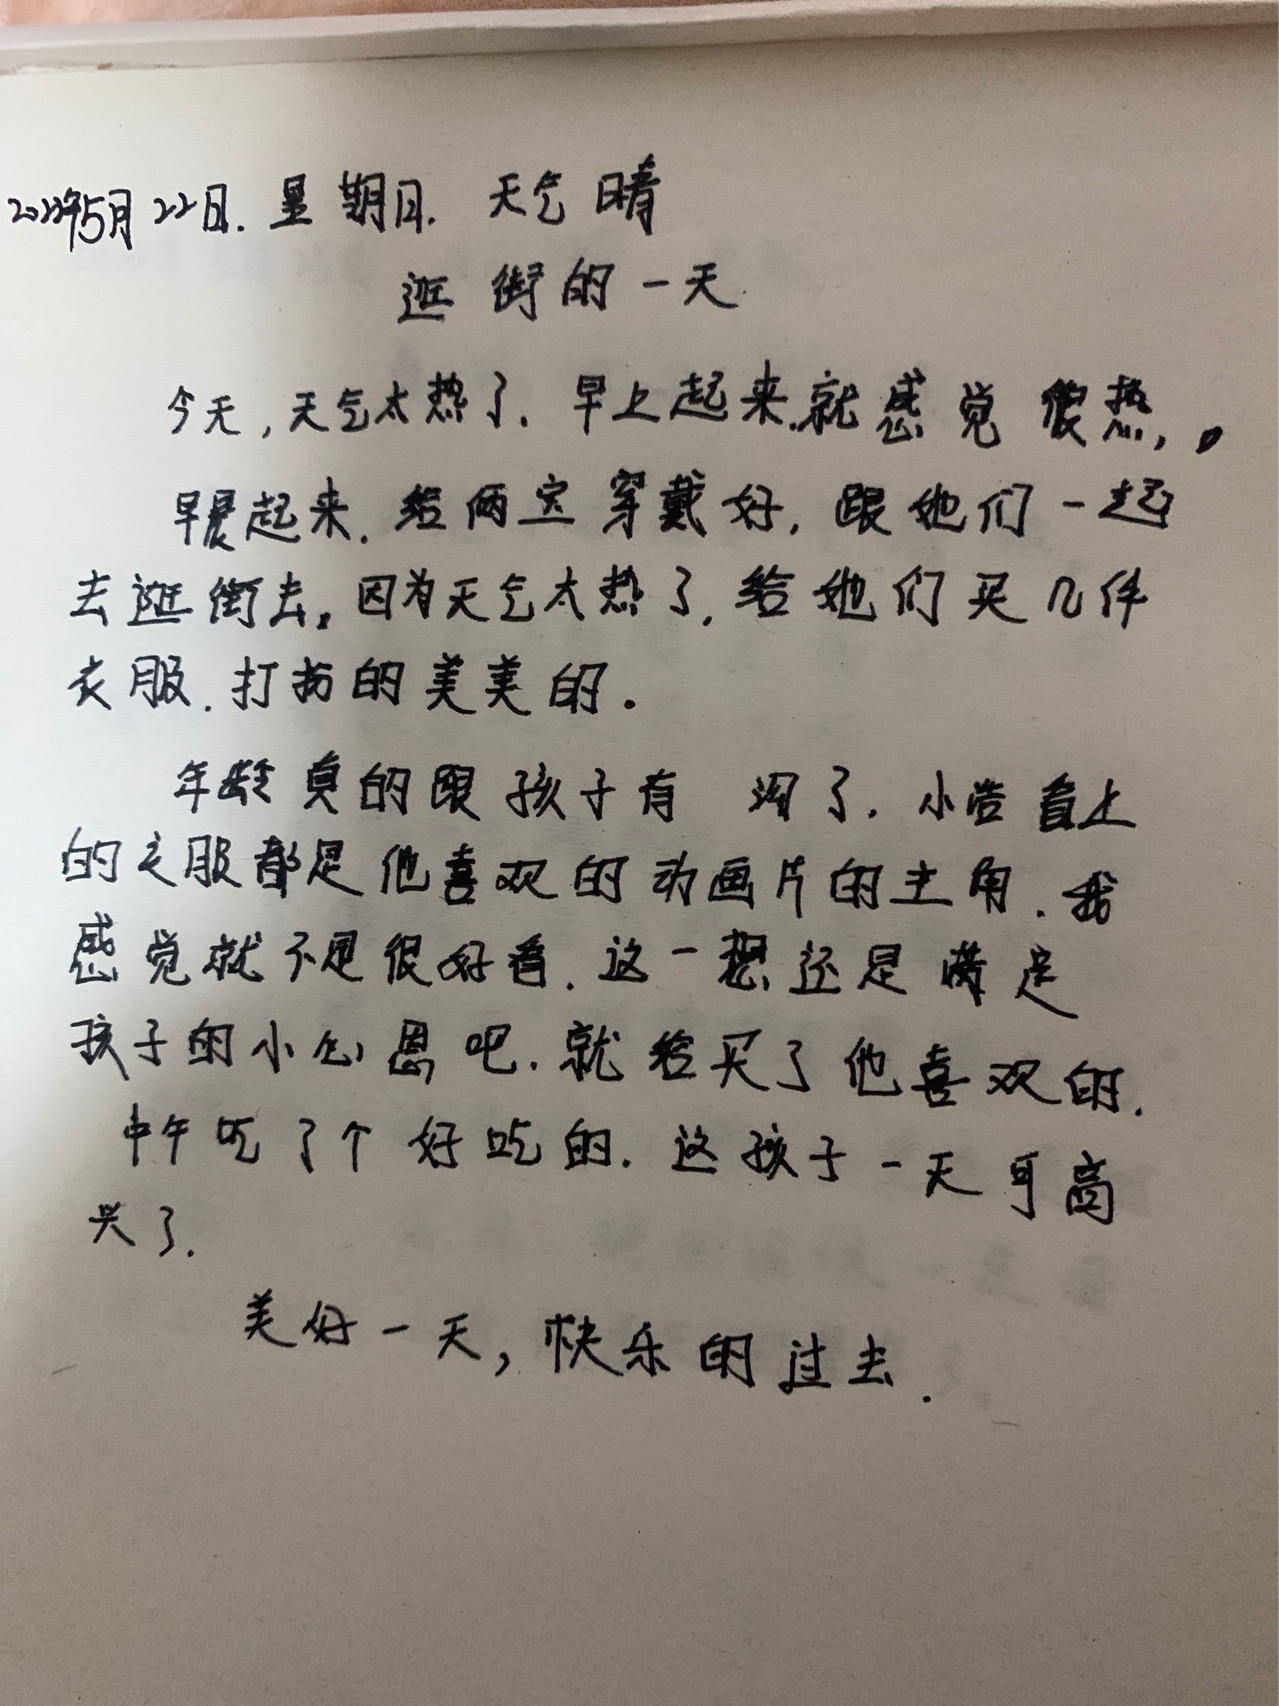 2022年5月22日. 星期日. 天气晴
逛街的一天
今天,天气太热了.早上起来.就感觉很热,。
早晨起来.给两宝穿戴好.跟她们一起
去逛街去。因为天气太热了,给她们买几件
衣服.打扮的美美的.
年龄真的跟孩子有 沟了.小浩看上
的衣服都是他喜欢的动画片的主角.我
感觉就不是很好看.这一想还是满足
孩子的小心愿吧.就给买了他喜欢的.
中午吃了个好吃的.这孩子一天可高
兴了.
美好一天,快乐的过去.